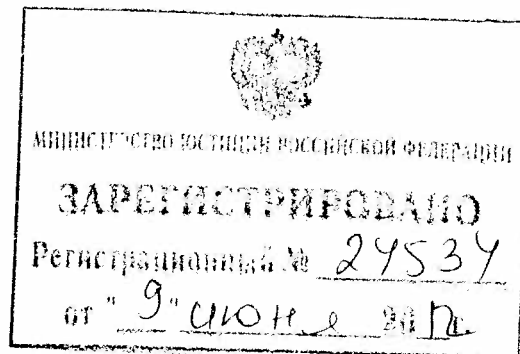 МИНИСТЕРСТВО ЮСТИЦИИ РОССИЙСКОЙ ФЕДЕРАЦИИ
ЗАРЕГИСТРИРОВАНО
Регистрационный № 24534
от "9" июня 2012.